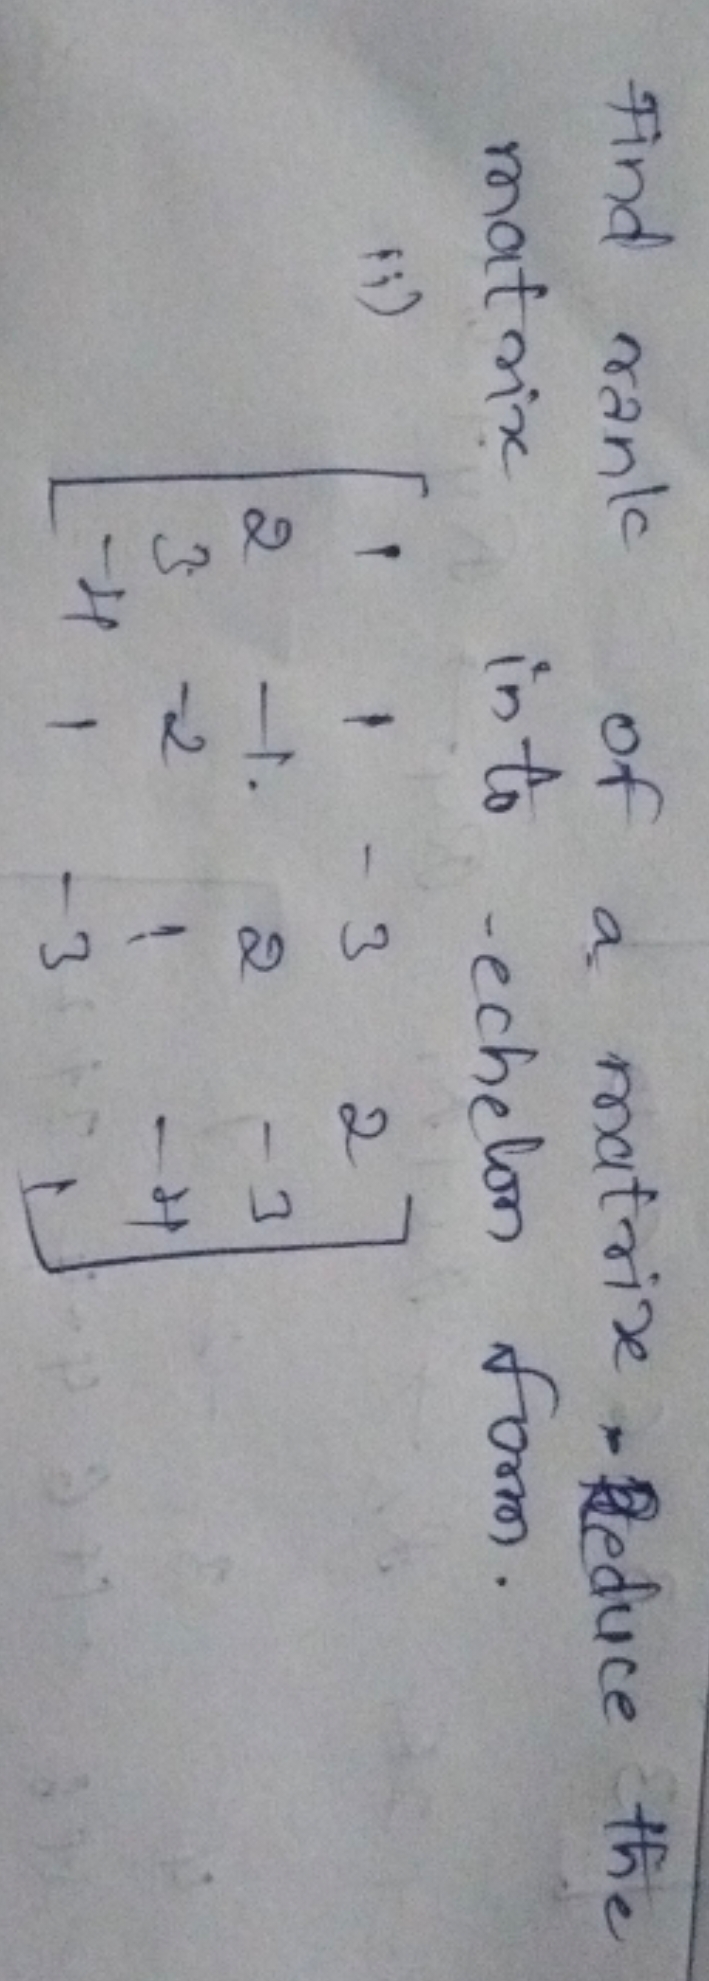 Find rank of a matrix. Reduce the
matrix into echelon form.
ii) [ 1 1 -3 2
2 -1 2 -3
3 -2 1 -4
-4 1 -3 1 ]